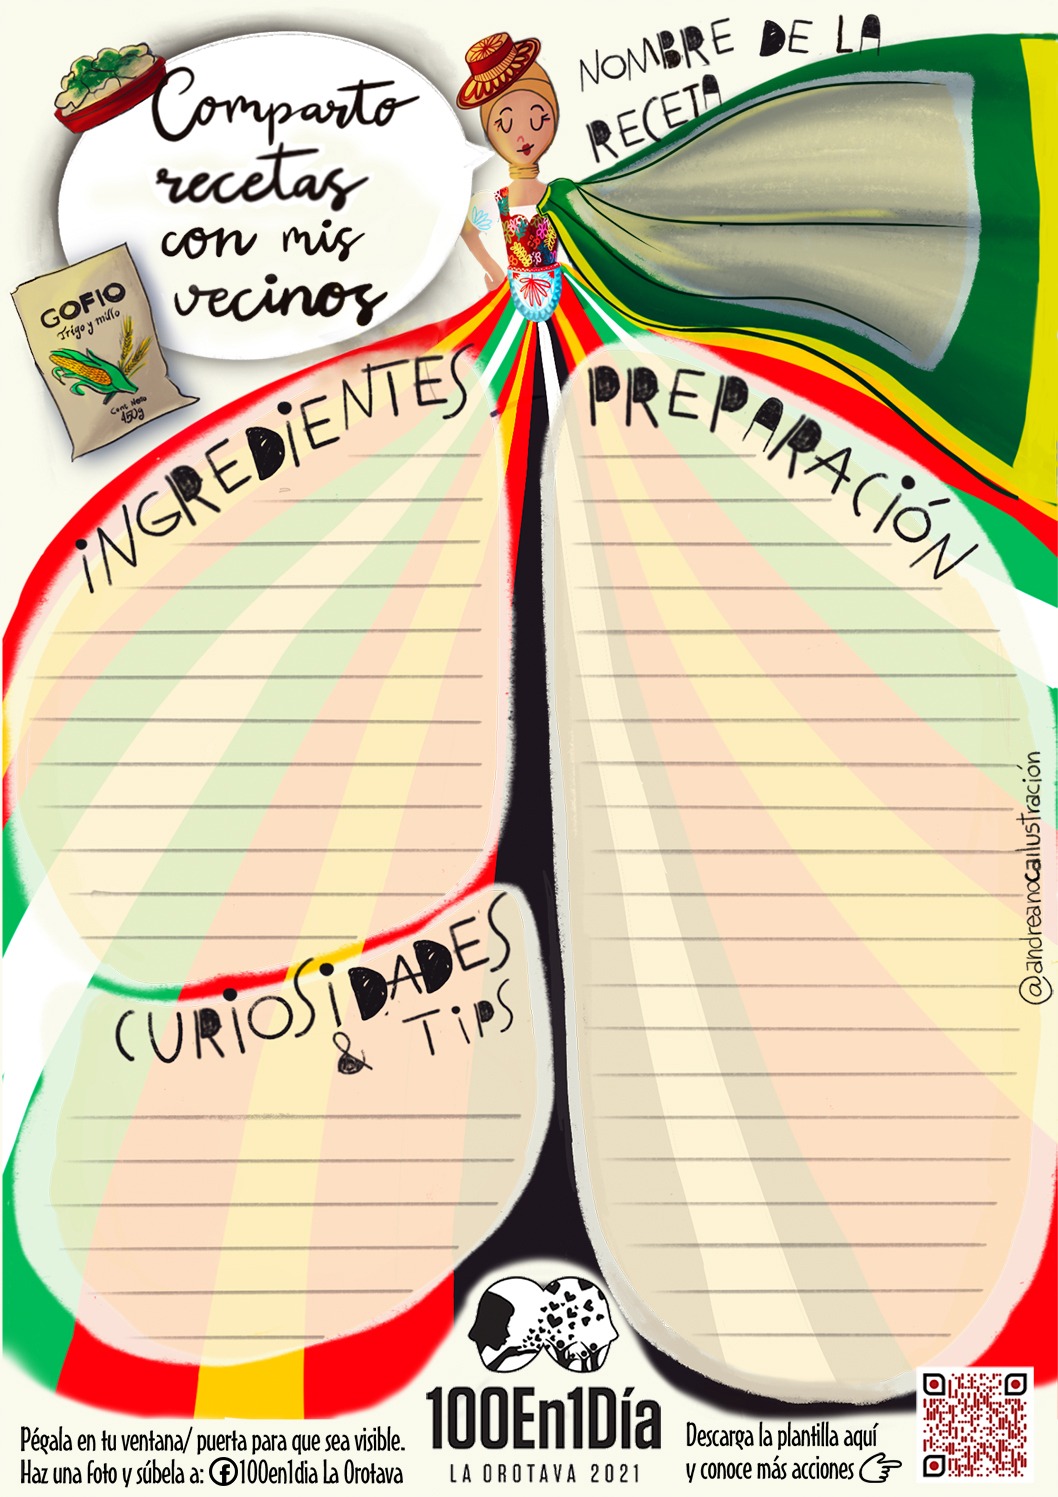 Comparto
recetas
con mis
vecinos
NOMBRE DE LA
RECETA
GOFIO
Trigo y millo
Cont. Neto
450g
iNGREDiENTES
PREPARACiÓN
CURiOSiDADES
& TiPS
@andreanocailustración
100En1Día
LA OROTAVA 2021
Pégala en tu ventana/ puerta para que sea visible.
Haz una foto y súbela a: f 100en1dia La Orotava
Descarga la plantilla aquí
y conoce más acciones